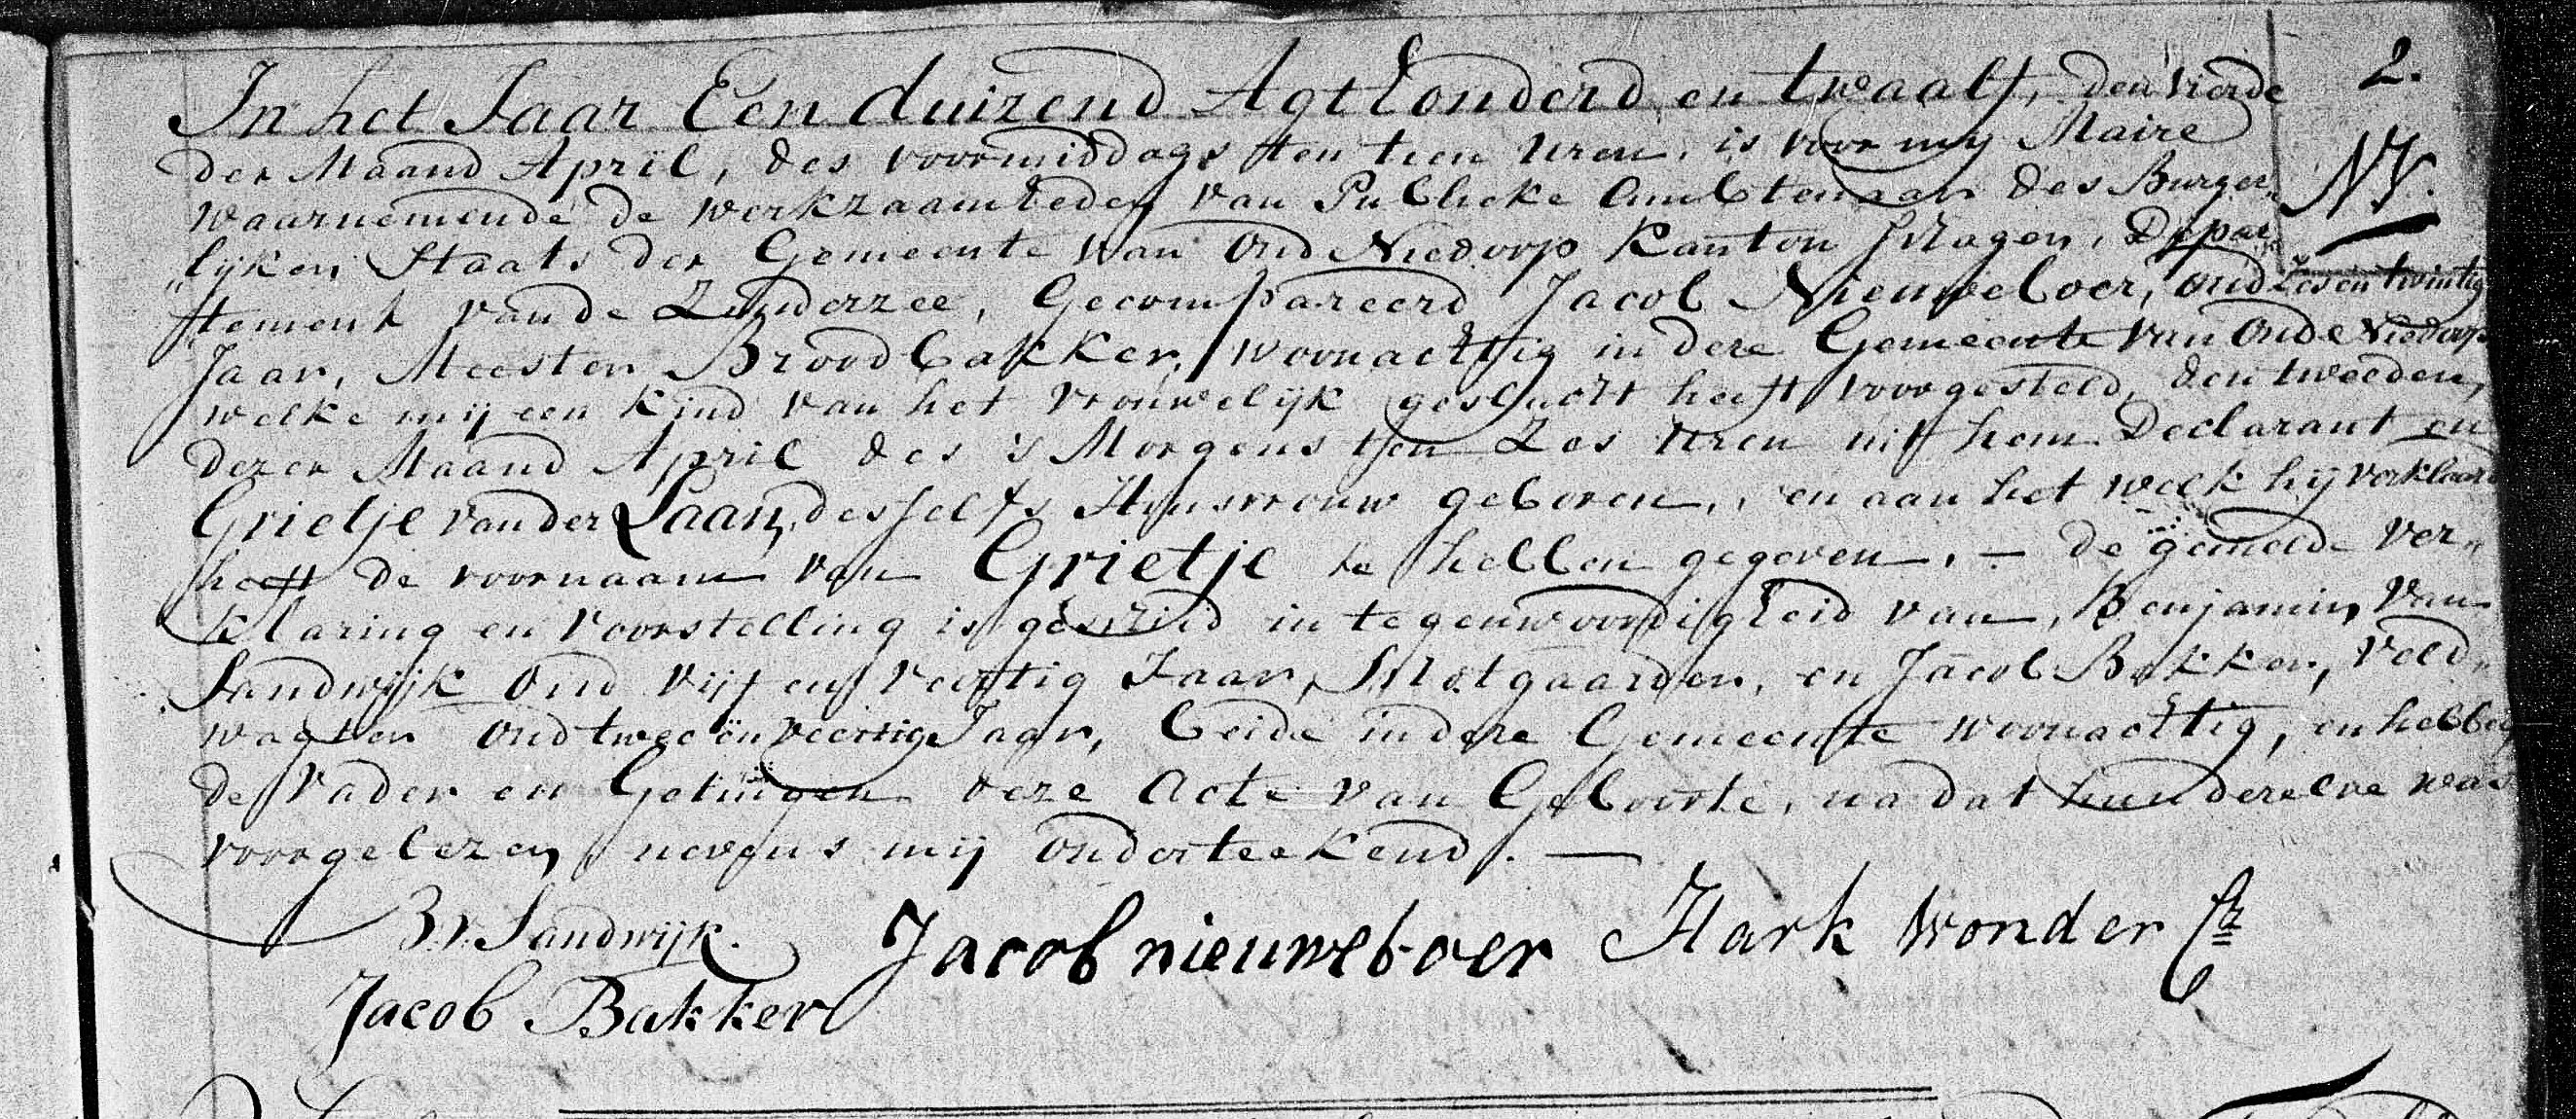 2.
NV.
In het Jaar Een duizend Agthonderd en twaalf, den vierde
der Maand April, des voormiddags ten tien uren, is voor my Maire
waarnemende de werkzaamheden van Publieke Ambtenaar des Burger„
„lijken Staats der Gemeente van Oud Niedorp Kanton Schagen, Depar„
„tement van de Zuiderzee, Gecompareerd Jacob Nieuweboer, oud Zes en twintig
Jaar, Meester Broodbakker, woonachtig in deze Gemeente van Oude Niedorp
welke mij een Kind van het Vrouwelijk geslacht heeft voorgesteld, den tweeden,
dezer Maand April des 's Morgens ten Zes uren uit hem Declarant en
Grietje van der Laan, desselfs Huisvrouw geboren, en aan het welk hij verklaard
heeft de voornaam van Grietje te hebben gegeven. — de gemelde Ver„
klaring en Voorstelling is geschied in tegenwoordigheid van, Benjamin Van
Sandwijk oud vijf en veertig Jaar, Slotgaarder, en Jacob Bakker, Veld„
wagter oud twee en veertig Jaar, beide in deze Gemeente woonachtig, en hebben
de Vader en Getuigen deze Acte van Geboorte, na dat hun dezelve was
voorgelezen nevens mij onderteekend. —
B.v. Sandwijk. Jacob nieuweboer Hark Wonder
Jacob Bakker